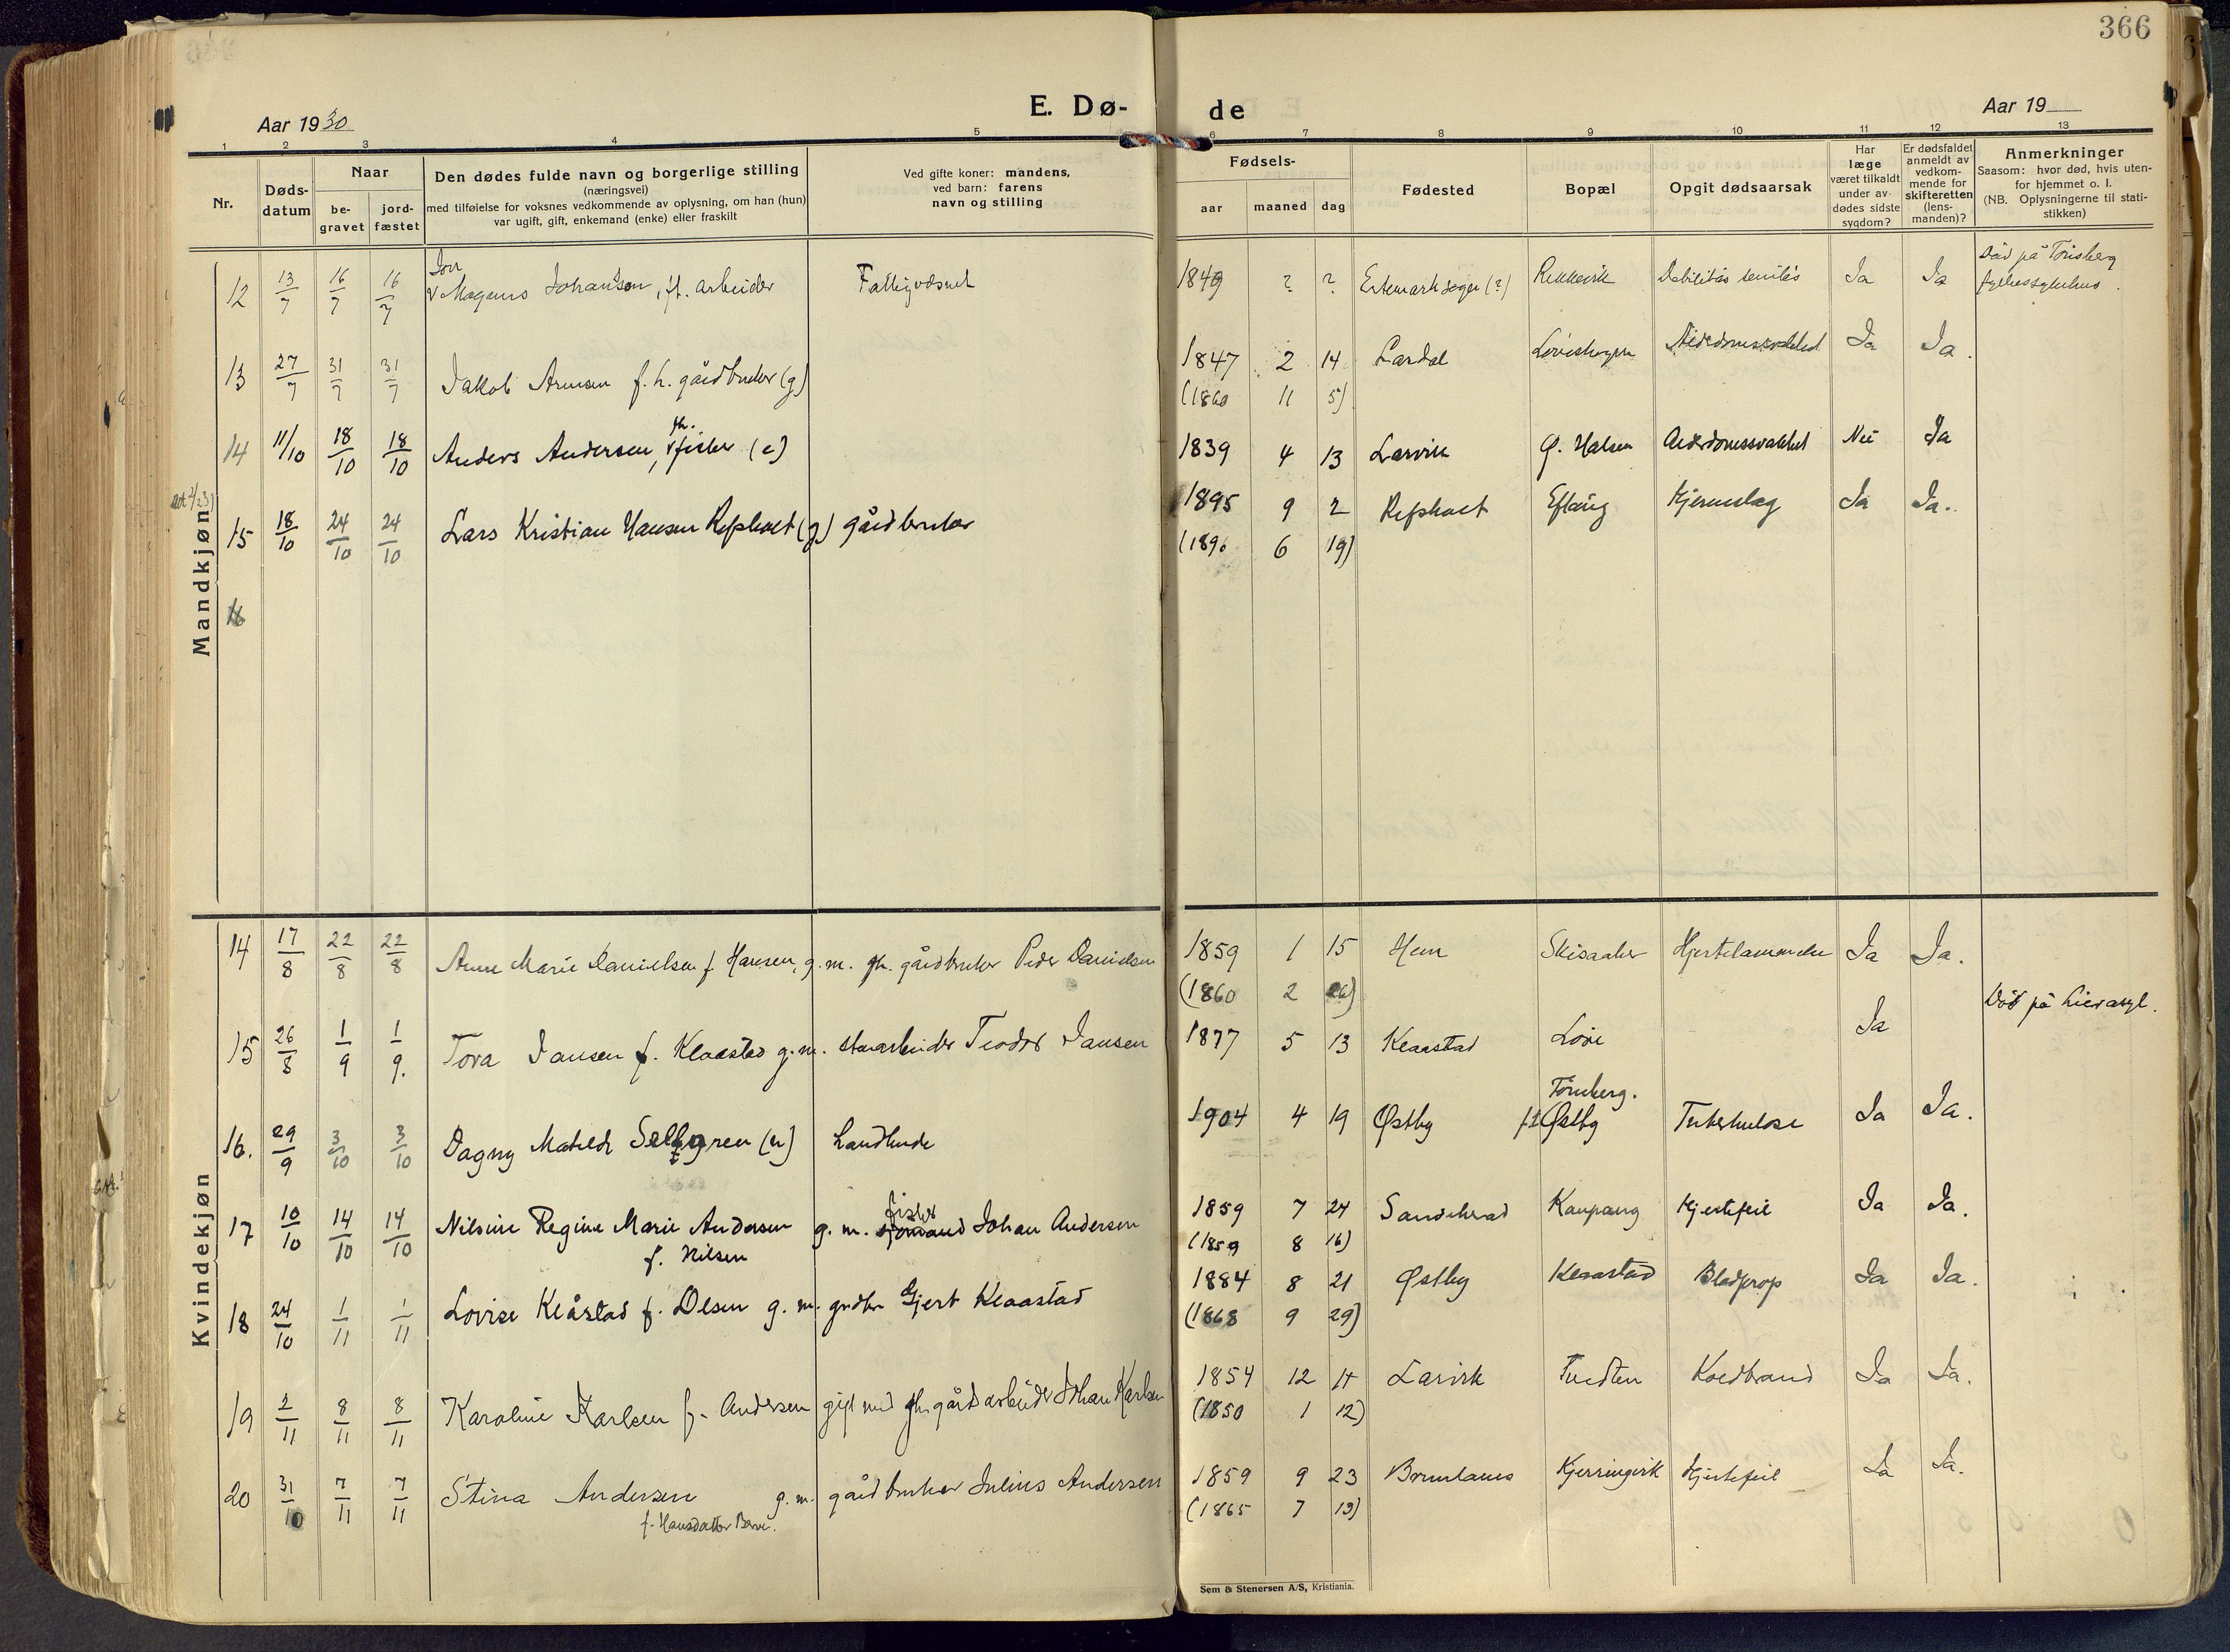 366
Aar 1930
E. Dø-
de
Aar 19
1 2 3 4 5 6 7 8 9 10 11 12 13
Nr.
Døds-
datum
Naar
be-
gravet
jord-
fæstet
Den dødes fulde navn og borgerlige stilling
(næringsvei)
med tilføielse for voksnes vedkommende av oplysning, om han (hun)
var ugift, gift, enkemand (enke) eller fraskilt
Ved gifte koner: mandens,
ved barn: farens
navn og stilling
Fødsels-
aar maaned dag
Fødested
Bopæl
Opgit dødsaarsak
Har
læge
været tilkaldt
under av-
dødes sidste
sygdom?
Er dødsfaldet
anmeldt av
vedkom-
mende for
skifteretten
(lens-
manden)?
Anmerkninger
Saasom: hvor død, hvis uten-
for hjemmet o. l.
(NB. Oplysningerne til stati-
stikken)
Mandkjøn
12 13/7 16/7 16/7 Magnus Johanson, fh. arbeider 1849 ? ? (?) Rekkevik Debilitas senilis Ja Ja Død på Tønsberg
fylkessykehus.
13 27/7 31/7 31/7 Jakob f. h. gårdbruker (g) 1847 2 14 Lardal Alderdomssvakhet Ja Ja.
(1860 11 5)
14 11/10 18/10 18/10 Anders Andersen, fh. fisker (e) 1839 4 13 Larvik Ø. Halsen Alderdomssvakhet Nei Ja
15 18/10 24/10 24/10 Lars Kristian Hansen Refsholt (g) gårdbruker 1895 9 2 Refsholt Eftang Hjerneslag Ja Ja.
(1896 6 19)
16
Kvindekjøn
14 17/8 22/8 22/8 Anne Marie Danielsen f. Hansen, g. m. fh. gårdbruker Peder Danielsen 1859 1 15 Hem Skisaaker Hjertelammelse Ja Ja.
(1860 2 26)
15 26/8 1/9 1/9. Tora Jansen f. Klaastad g. m. stenarbeider Teodor Jansen 1877 5 13 Klaastad Løve Ja Død på Lier asyl.
16. 29/9 3/10 3/10 Dagny Matilde Sellgren (u) 1904 4 19 Østby Tønsberg.
Østby Tuberkulose Ja Ja.
17 10/10 14/10 14/10 Nilsine Regine Marie Andersen g. m. fisker
sjømand Johan Andersen 1859 7 24 Sandeherad Kaupang Hjertefeil Ja Ja.
f. Nilsen
(1859 8 16)
18 24/10 1/11 1/11 Lovise Klåstad f. Olsen g. m. grdbr Gjert Klaastad 1884 8 21 Østby Klaastad Blodprop Ja Ja.
(1868 9 29)
19 2/11 8/11 8/11 Karoline Karlsen f. Andersen gift med fh. gårdarbeider Johan Karlsen 1854 12 Larvik Tvedten Koldbrand Ja Ja.
(1850 1 12)
20 31/10 7/11 7/11 Stina Andersen g. m. gårdbruker Julius Andersen 1859 9 23 Brunlanes Kjerringvik Hjertefeil Ja Ja.
f. Hansdatter
(1865 7 13)
Sem & Stenersen A/S, Kristiania.